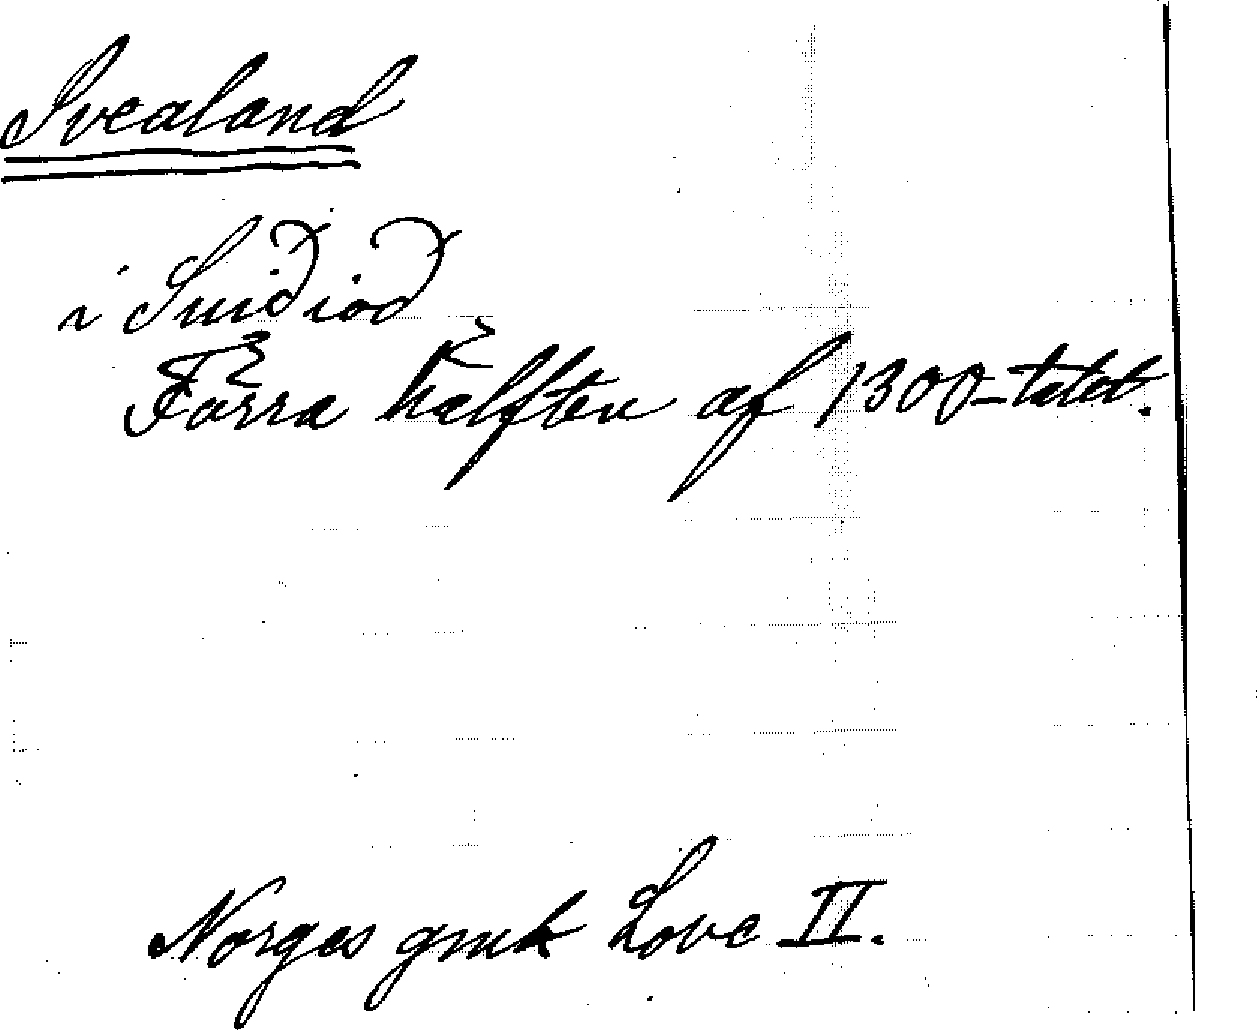 Svealand
i Suiðioð
Förra hälften af 1300-talet.
Norges gmle Love II.